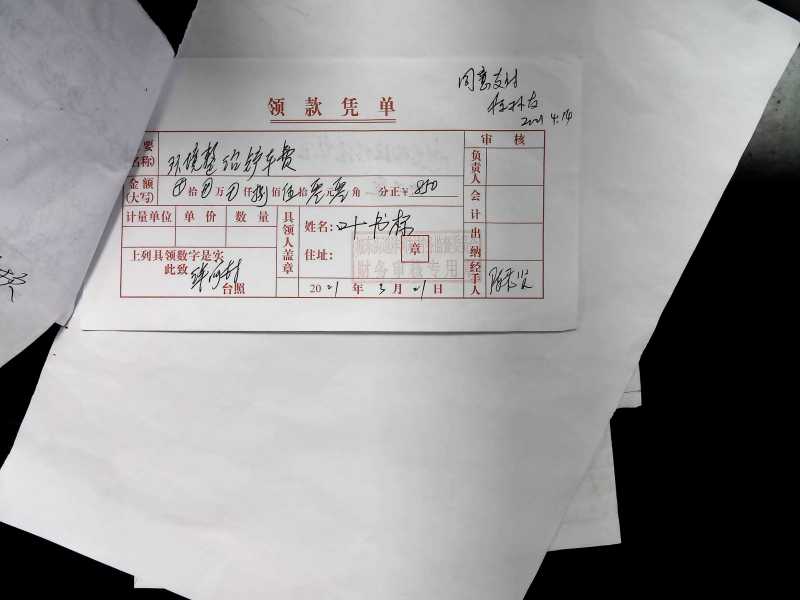 同意支付
2021 4.14
领款凭单
要 环境整治铲车费
名称)
审核
金额 拾 万 仟 捌佰 伍拾 零元 零角 分正¥ 850
(大写)
负责人
计量单位 单价 数量
会计
具领人盖章
姓名: 叶书栋
住址: 章
出纳
财务审核专用
上列具领数字是实
此致
台照
2021年3月21日
经手人